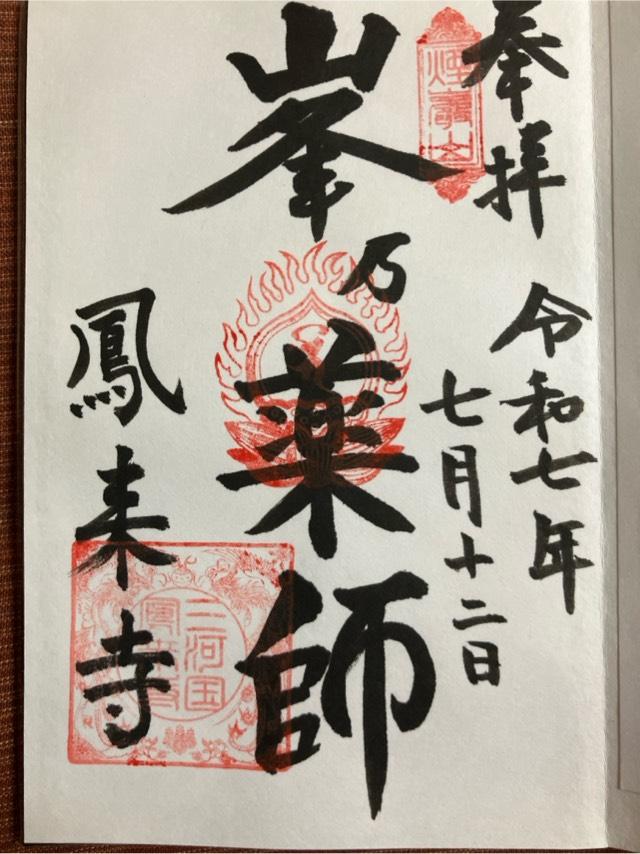 奉拝
令和七年
七月十二日
煙巌山
峯乃薬師
鳳来寺
三河国